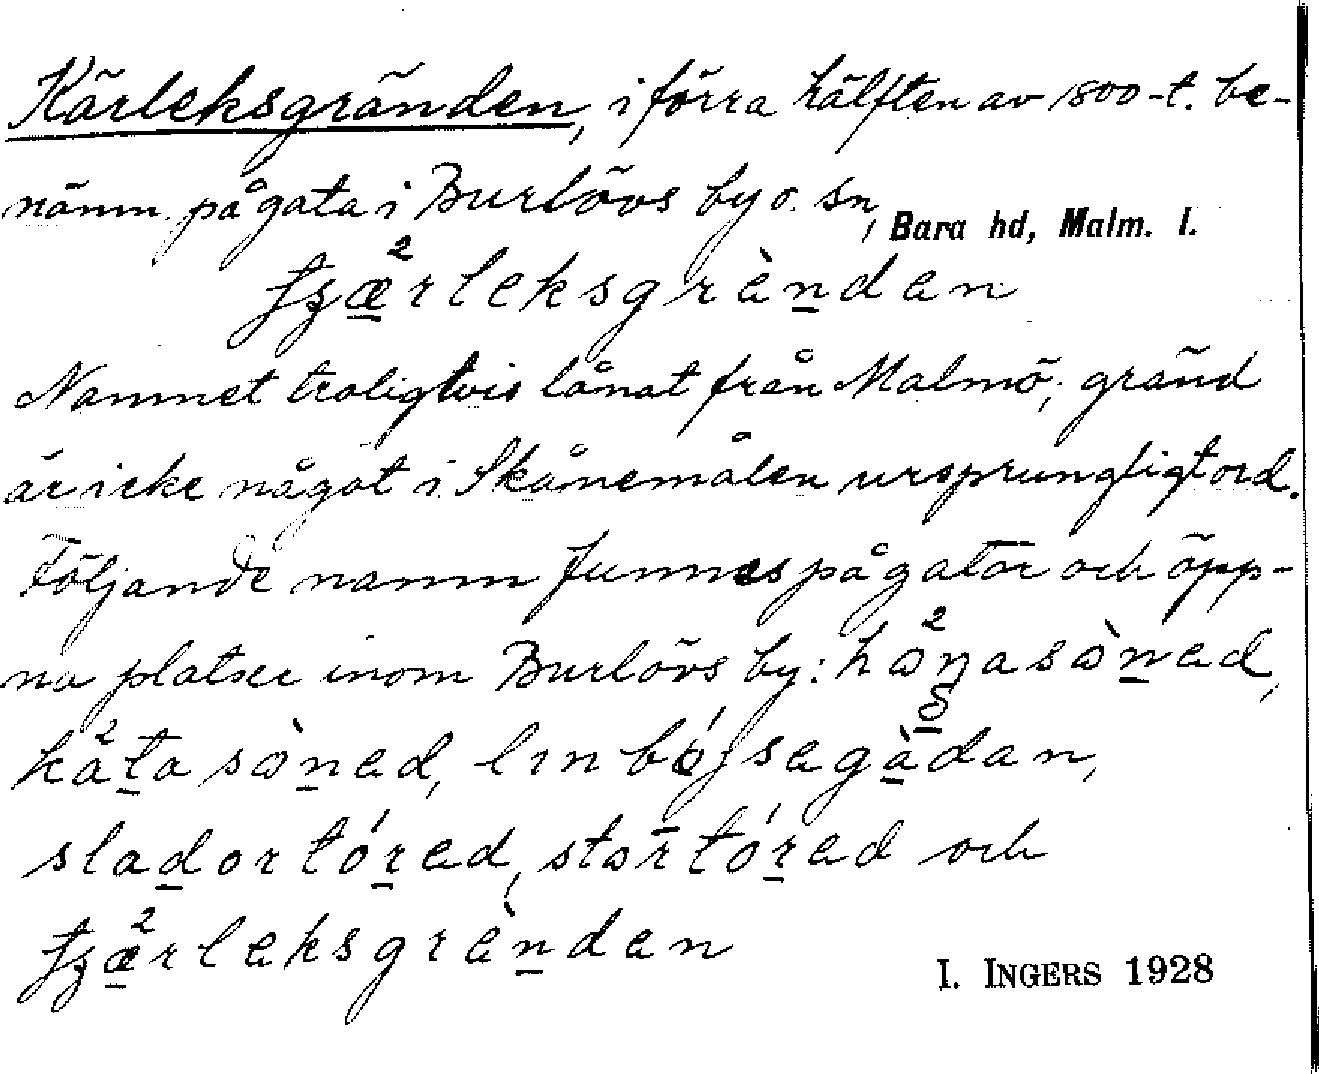 Kärleksgränden, i förra hälften av 1800-t. be-
nämn. på gata i Burlövs by o. sn, Bara hd, Malm. l.
tȥæ²rleksgrènden
Namnet troligtvis lånat från Malmö; gränd
är icke något i Skånemålen ursprungligt ord.
Följande namn funnes på gator och öpp-
na platser inom Burlövs by: hö²nasòned,
ká²tasòned, linbójsegàdan,
sladortóred, stortóred och
tȥæ²rleksgrènden
I. INGERS 1928